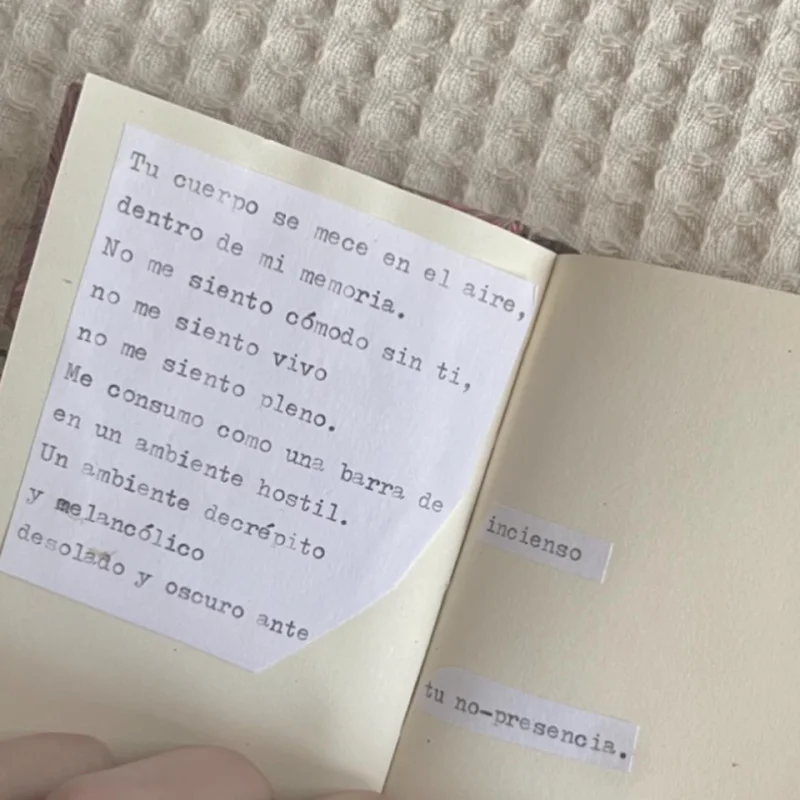 Tu cuerpo se mece en el aire,
dentro de mi memoria.
No me siento cómodo sin ti,
no me siento vivo
no me siento pleno.
Me consumo como una barra de incienso
en un ambiente hostil.
Un ambiente decrépito
y melancólico
desolado y oscuro ante tu no-presencia.